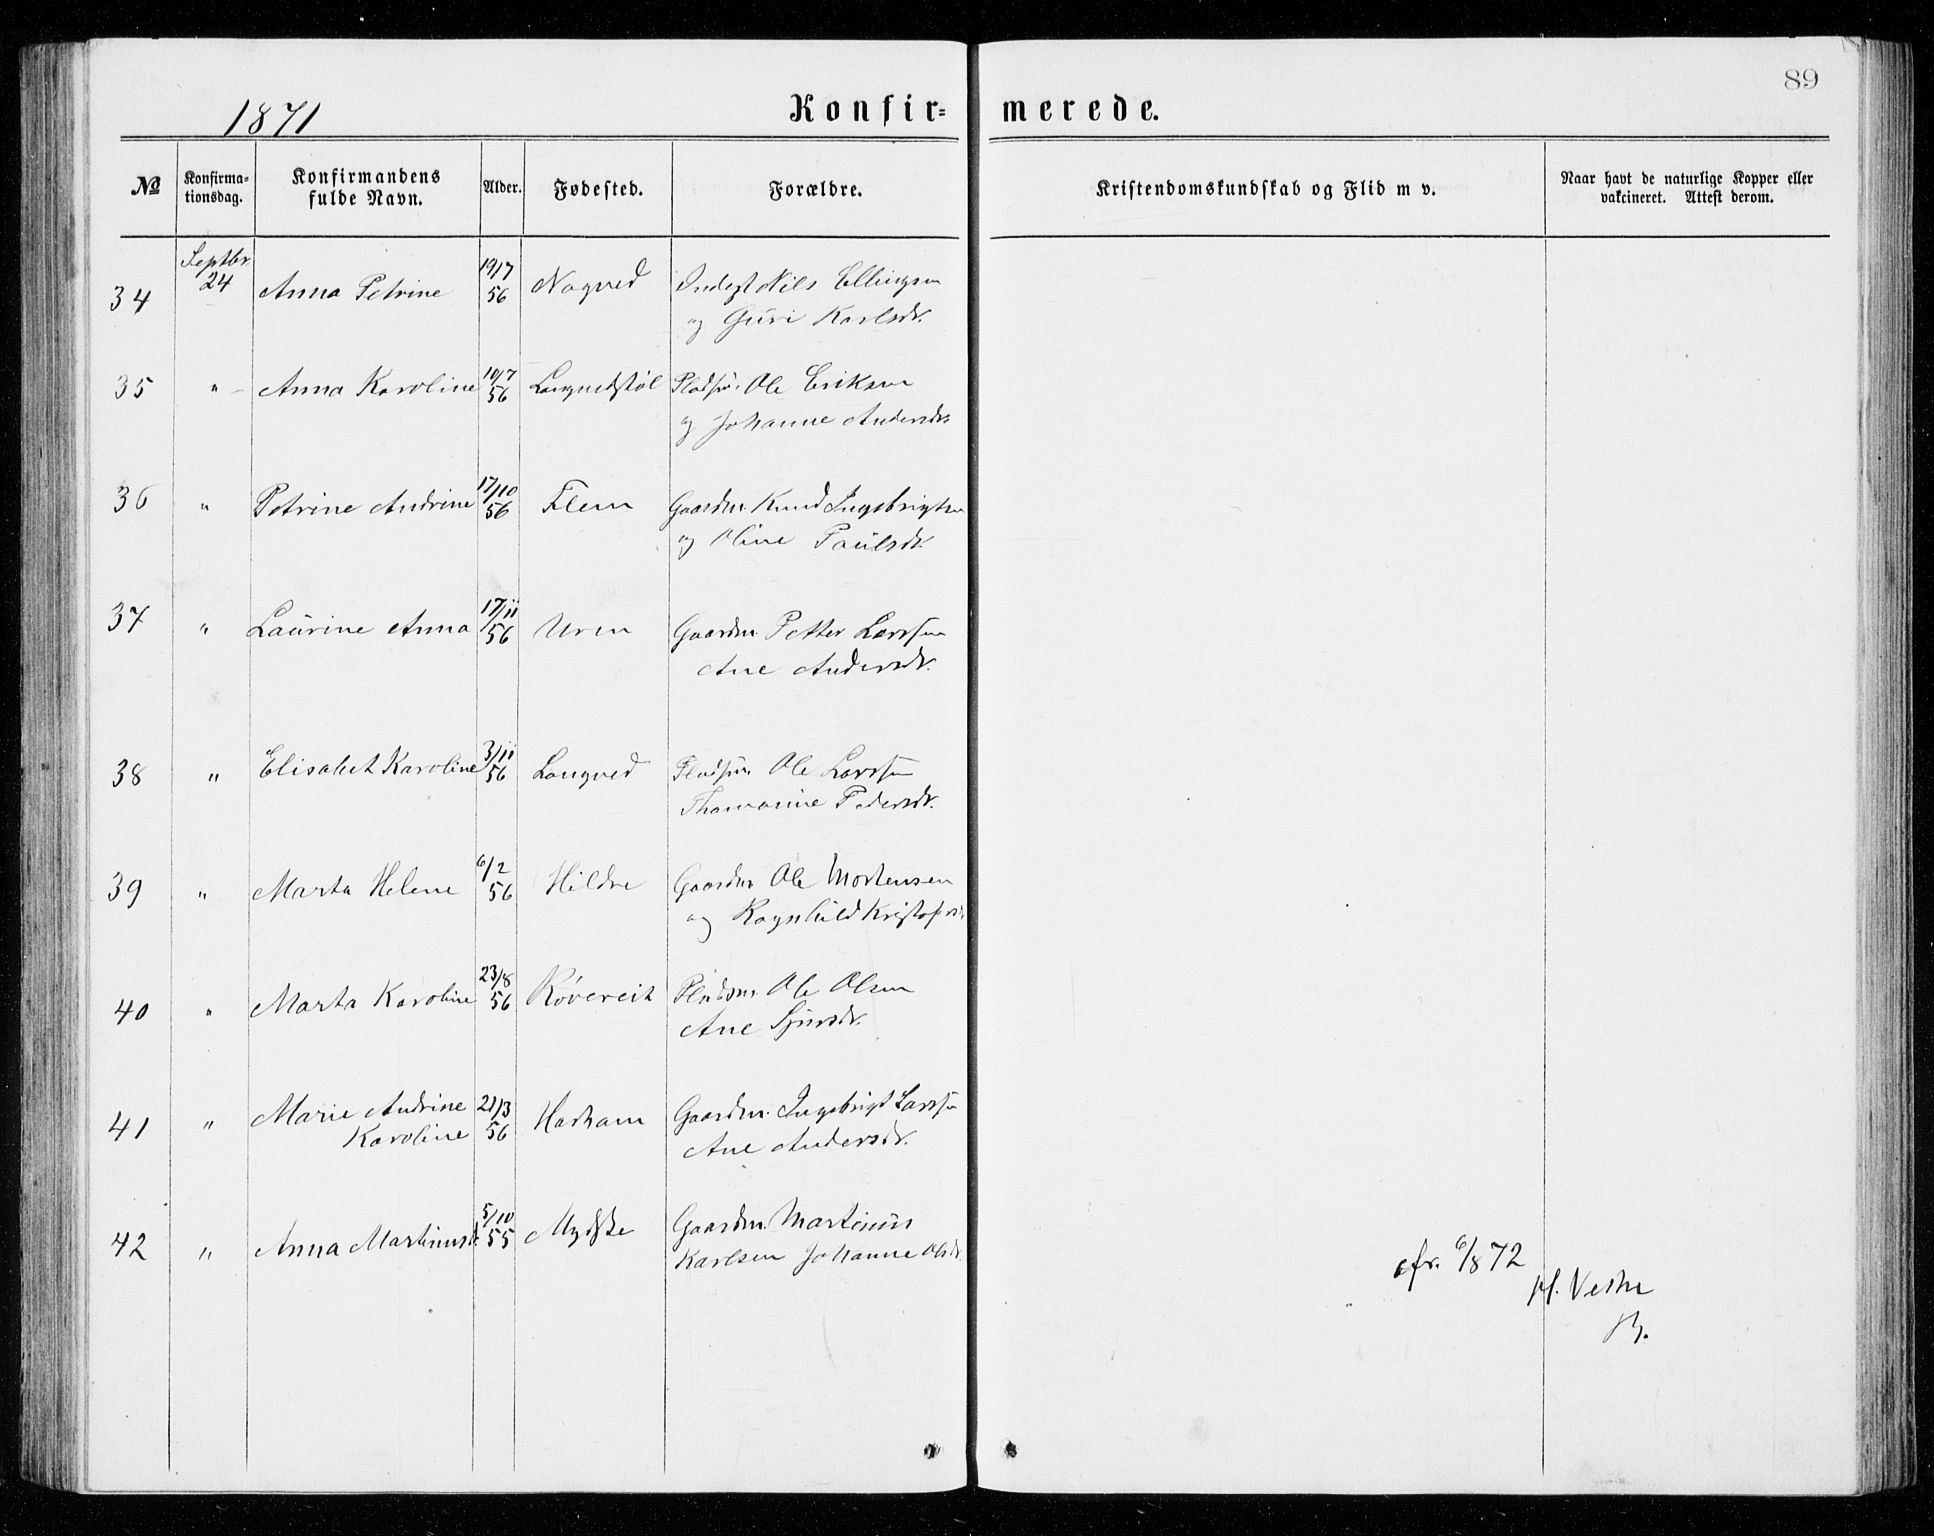 89
1871 Konfir= merede.
№ Konfirma-tionsdag. Konfirmandens fulde Navn. Alder. Fødested. Forældre. Kristendomskundskab og Flid m v. Naar havt de naturlige Kopper eller vakcineret. Attest derom.
Septbr
34 24 Anna Petrine 19/7 56 Nogved Inderst Nils Ellingsen
og Guri Karlsdr.
35 " Anna Karoline 10/7 56 Longvedstøl Pladsm. Ole Eriksen
og Johanne Andersdr.
36 " Petrine Andrine 17/10 56 Flem Gaardm. Knud Ingebrigtsen
og Oline Paulsdr.
37 " Laurine Anna 17/11 56 Uren Gaardm. Petter Larssen
Ane Andersdr.
38 " Elisabet Karoline 3/11 56 Longved Pladsm. Ole Larssen
Thomasine Pedersdr.
39 " Marta Helene 6/2 56 Hildre Gaardm. Ole Mortensen
og Ragnhild Kristofersdr.
40 " Marta Karoline 23/8 56 Røvereit Pladsm. Ole Olsen
Ane Sjursdr.
41 " Marie Andrine 21/3 56 Harham Gaardm. Ingebrigt Larssen
Karoline Ane Andersdr.
42 " Anna Martinusd. 5/10 55 Mydske Gaardm. Martinus
Karlsen Johanne Olsdr.
cfr. 6/8 72